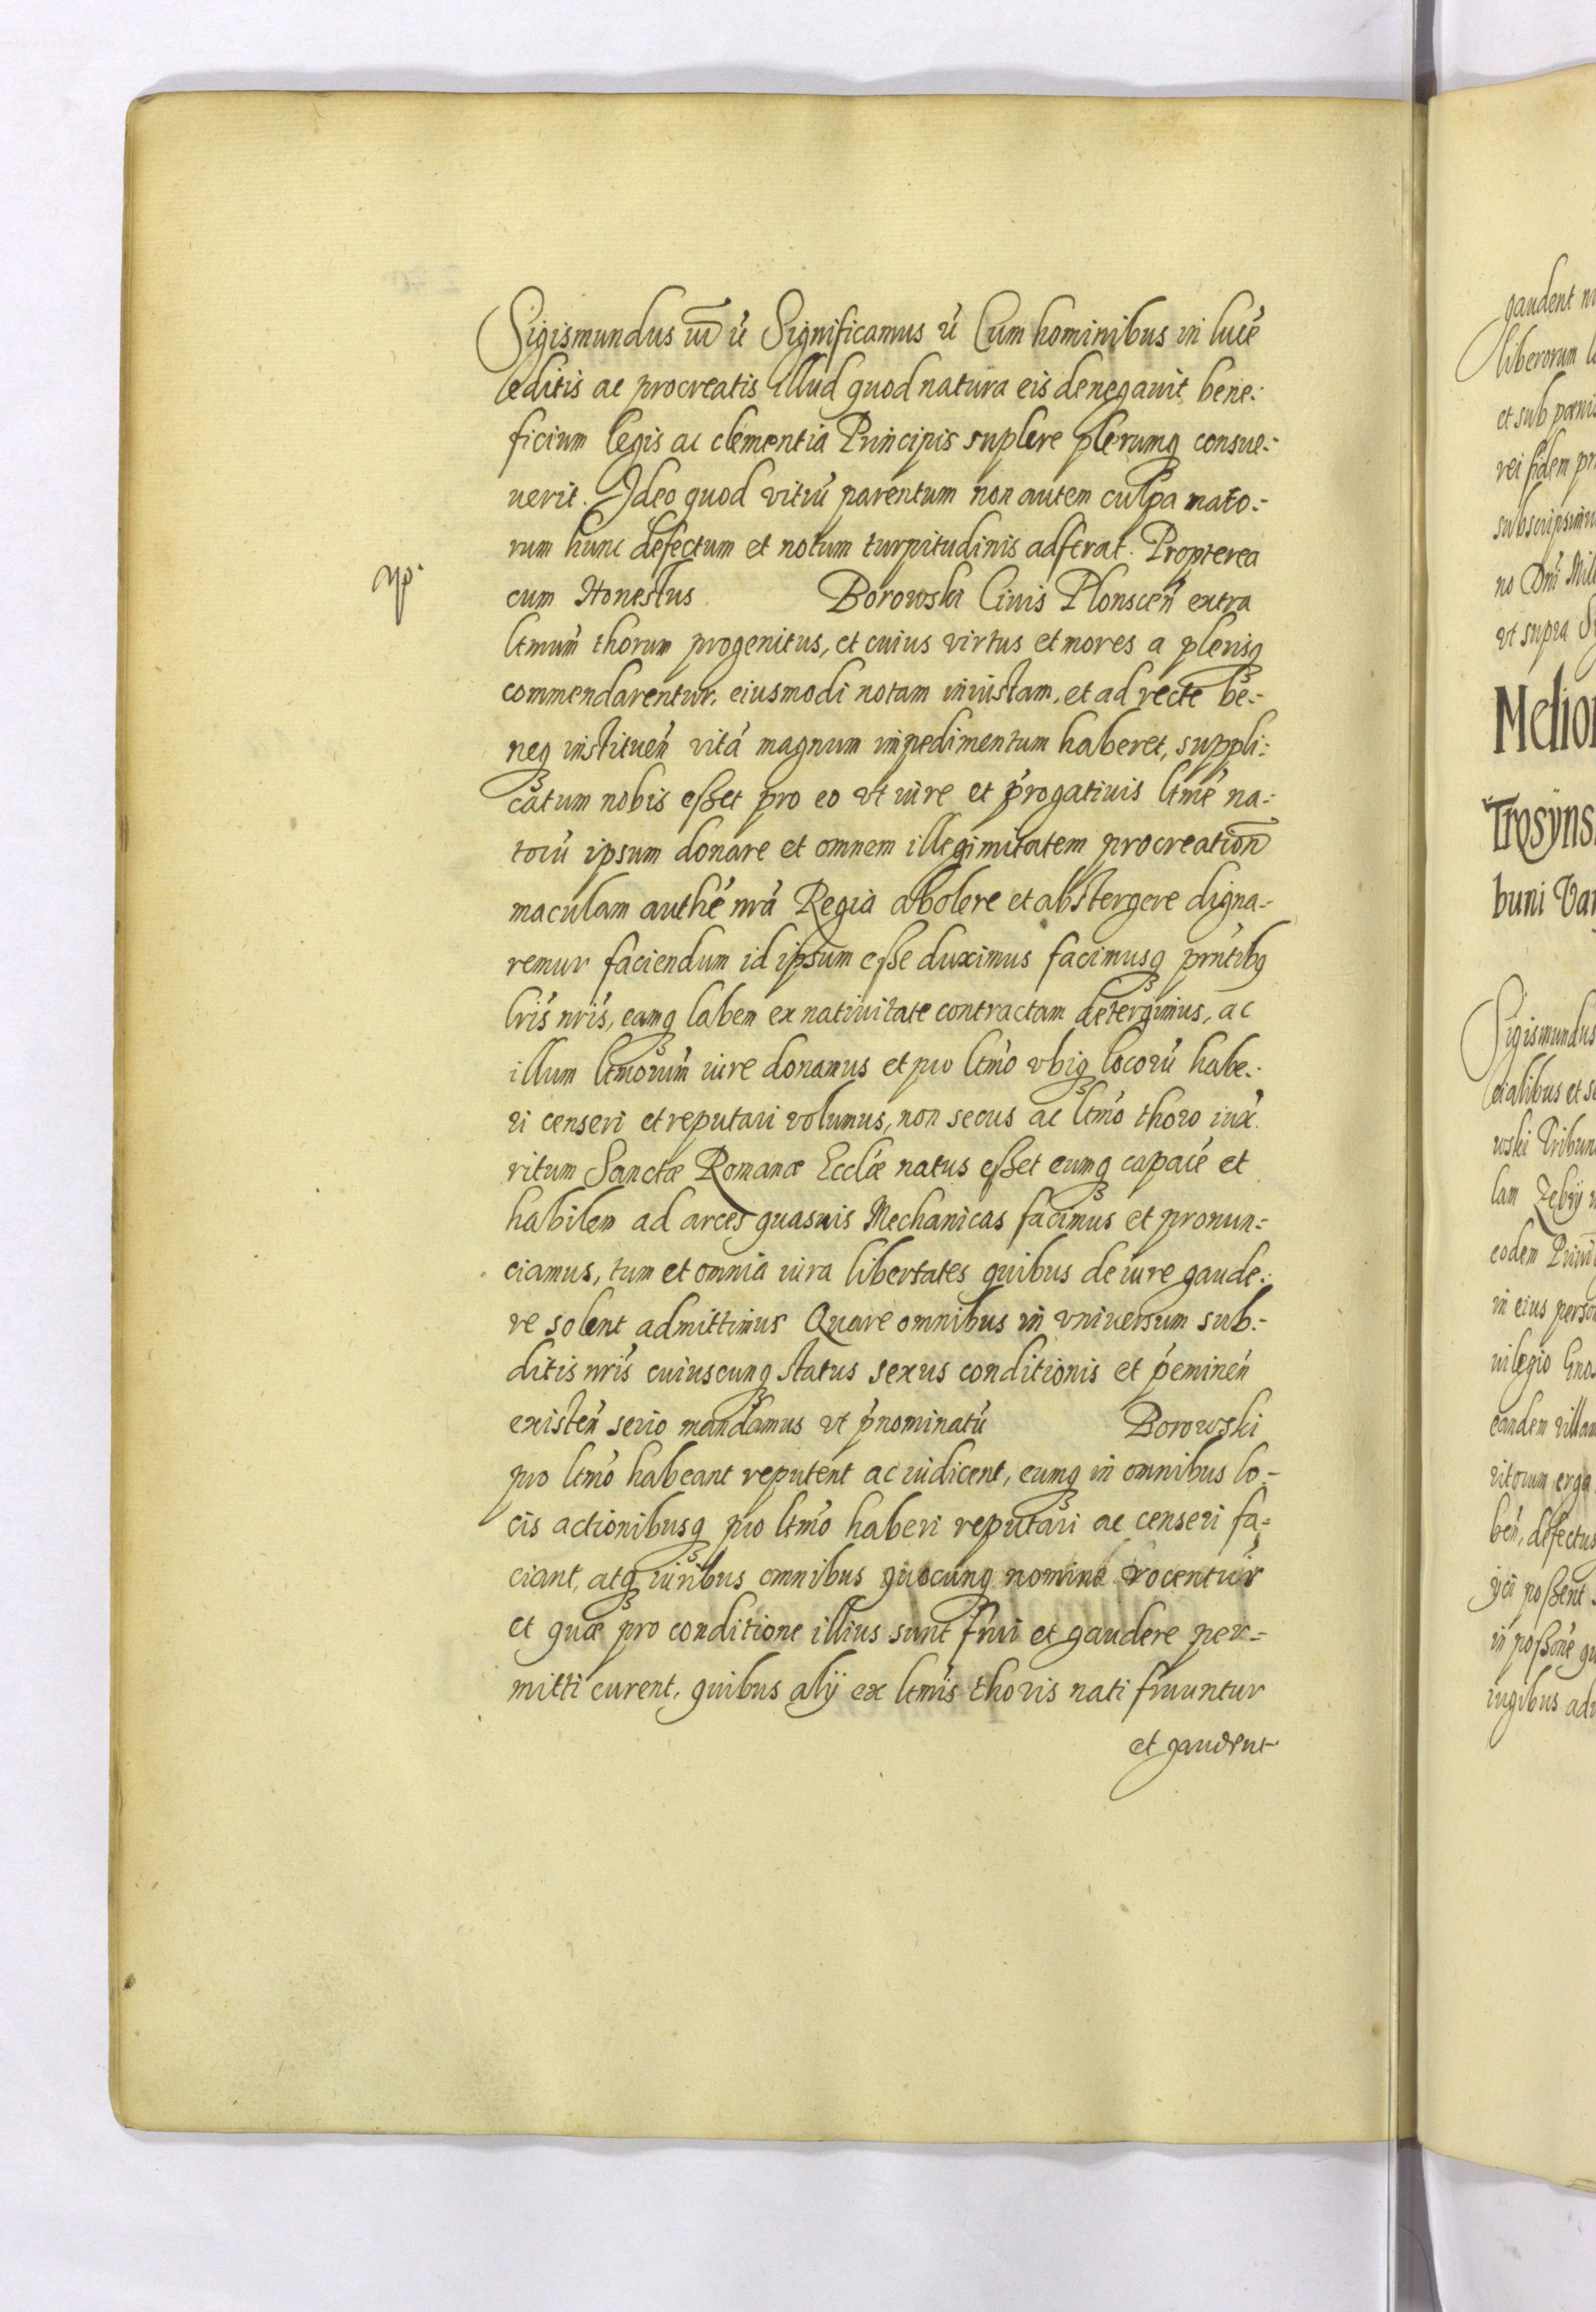 Sigismundus III etc Significamus etc Cum hominibus in lucẽ
editis ac procreatis illud quod natura eis denegauit bene:
ficium legis ac clementia Principis suplere plerumq consue:
uerit. Ideo quod vitiũ parentum non autem culpa nato:
rum hunc defectum et notum turpitudinis adferat. Propterea
cum Honestus Borowski Ciuis Plonsceñ extra
ltmum̃ thorum progenitus, et cuius virtus et mores a plerisq
commendarentur, eiusmodi notam iniustam, et ad recte be:
neq instituen̄ vitã magnum impedimentum haberet, suppli:
catum nobis eßet pro eo vt iure et p̃rogatiuis ltmẽ na:
torũ ipsum donare et omnem illegimitatem procreation̄
maculam authẽ nrã Regia abolere et abstergere digna:
remur faciendum id ipsum eße duximus facimusq pñtibq
lris̃ nris̃, eamq labem ex natiuitate contractam detergimus, ac
illum ltmorum̃ iure donamus et pro ltmõ vbiq locorũ habe:
ri censeri et reputari volumus, non secus ac ltmõ thoro iux̃
ritum Sanctæ Romanæ Eccliæ natus eßet eumq capacẽ et
habilem ad arces quasuis Mechanicas facimus et pronun:
ciamus, tum et omnia iura libertates quibus de iure gaude:
re solent admittimus Quare omnibus in vniuersum sub:
ditis nris̃ cuiuscunq status sexus conditionis et p̃eminen̄
existen̄ serio mandamus vt p̃nominatũ Borowski
pro ltmõ habeant reputent ac iudicent, eumq in omnibus lo:
cis actionibusq pro ltmõ haberi reputari ac censeri fa:
ciant, atq iuribus omnibus quocunq nomine vocentur
et quæ pro conditione illius sunt frui et gaudere per:
mitti curent, quibus alÿ ex ltmis̃ thoris nati fruuntur
et gaudent
gaudent
liberorum
et sub pœnis
rei fidem
no Dni
vt supra
Trosÿns
buni
Sigismundus
cialibus et
wski
lam
eodem
in eius
uilegio
eandem villam
uitorum erga
ben̄, defectus
poßent
in poßonẽ
iugibus